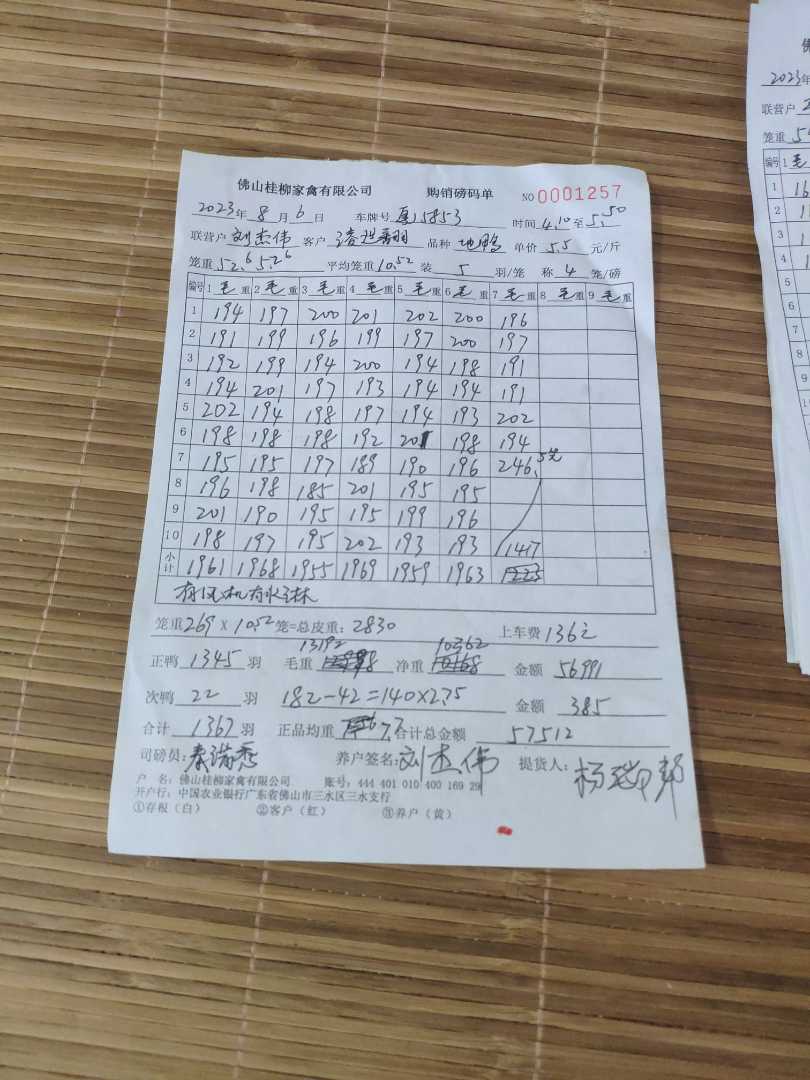 佛山桂柳家禽有限公司 购销磅码单 NO 0001257
2023年 8 月 6 日 车牌号 15853 时间 4.10 至 5.50
联营户 刘杰伟 客户 品种 地鸭 单价 5.5 元/斤
笼重 52.6 5.26 平均笼重 10.52 装 5 羽/笼 称 4 笼/磅
编号 1 毛 重 2 毛 重 3 毛 重 4 毛 重 5 毛 重 6 毛 重 7 毛 重 8 毛 重 9 毛 重
1 194 197 200 201 202 200 196
2 191 199 196 199 197 200 197
3 192 199 194 200 194 198 191
4 194 201 197 193 194 194 191
5 202 194 198 197 194 193 202
6 198 198 198 192 201 198 194
7 195 195 197 189 190 196 246.5
8 196 198 185 201 195 195
9 201 190 195 195 199 196
10 198 197 195 202 193 193 1417
小计 1961 1968 1955 1969 1959 1963
有风机有水淋
笼重 269 X 10.52 笼=总皮重: 2830 上车费 136元
正鸭 1345 羽 毛重 13192 净重 10362 金额 56991
次鸭 22 羽 182-42=140×2.75 金额 385
合计 1367 羽 正品均重 7.7 合计总金额 57512
司磅员: 养户签名: 刘杰伟 提货人:
户 名: 佛山桂柳家禽有限公司 账号: 444 401 010 400 169 29
开户行: 中国农业银行广东省佛山市三水区三水支行
①存根(白) ②客户(红) ③养户(黄)
2023年
联营户
笼重
编号 1 毛